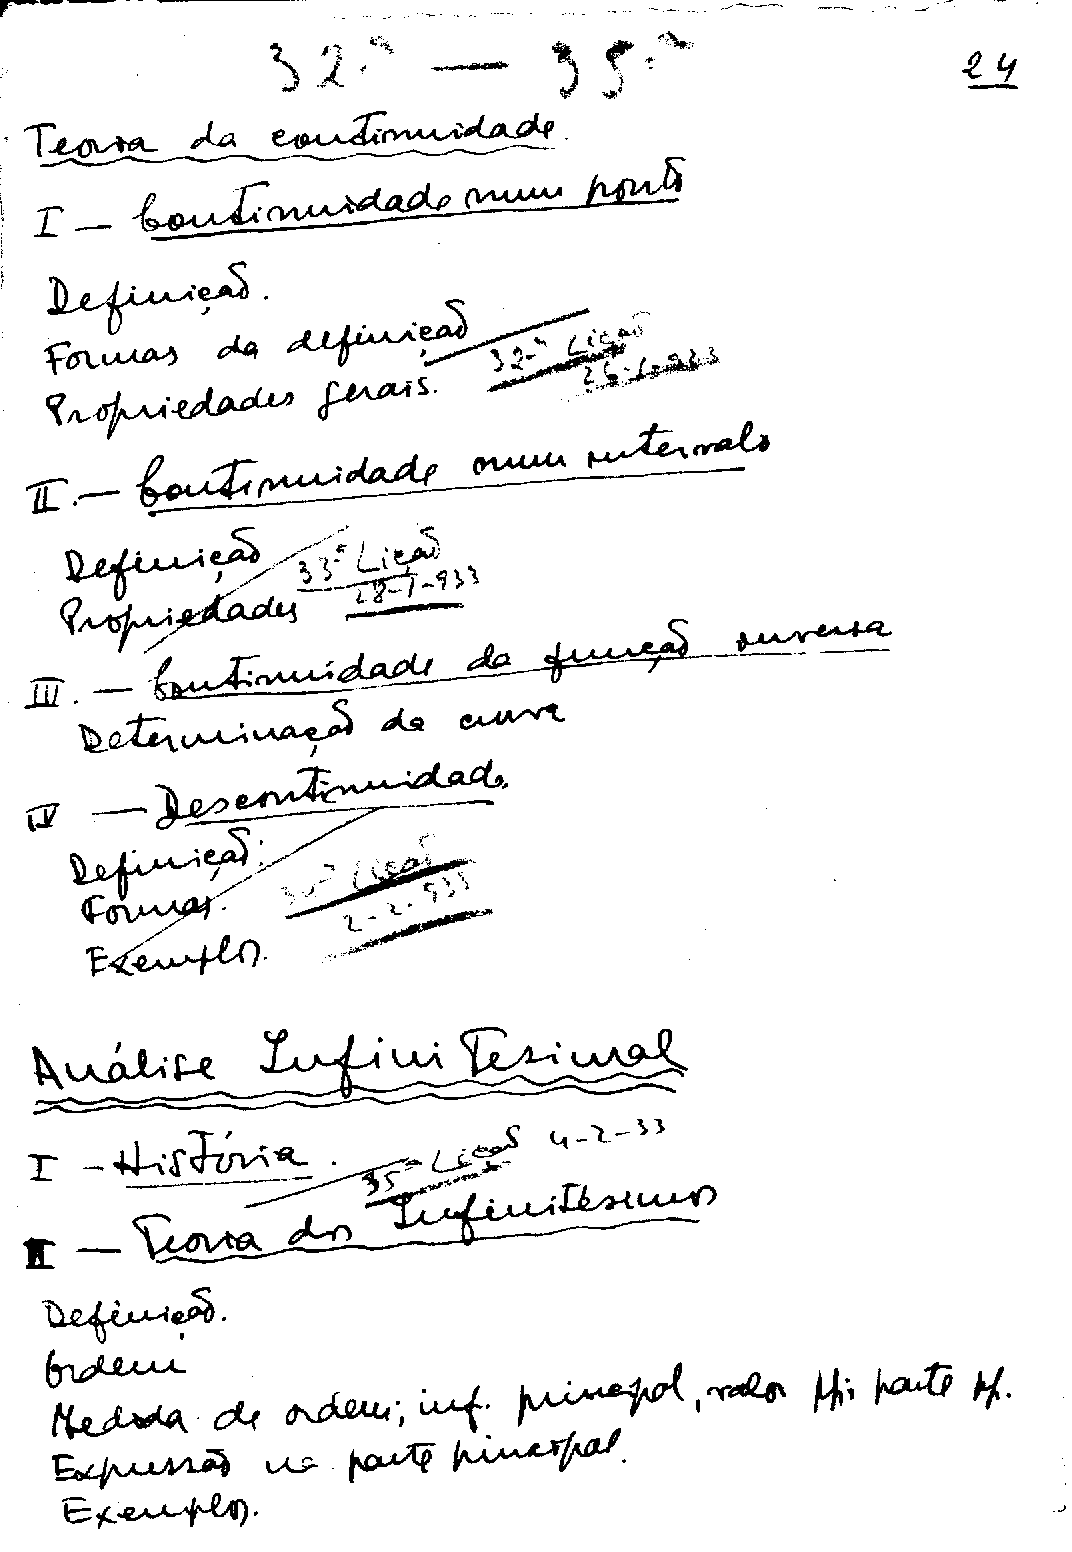 32.ª — 35.ª
24
Teoria da continuidade.
I — Continuidade num ponto
Definição.
Formas da definição
32.ª Lição
26-1-933
Propriedades gerais.
II. — Continuidade num intervalo
Definição
33.ª Lição
28-1-933
Propriedades
III. — Continuidade da função inversa
Determinação da curva
IV — Descontinuidade
Definição.
Lição
Formas.
2-2-933
Exemplos.
Análise Infinitesimal
I - História.
35ª Lição 4-2-33
II — Teoria dos Infinitésimos
Definição.
Ordem
Medida da ordem; inf. principal, valor pp; parte pp.
Expressão na parte principal.
Exemplos.